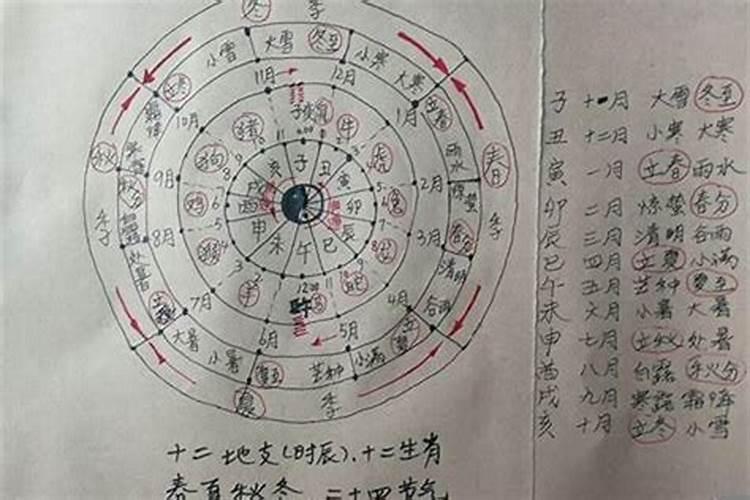 冬 季
小雪 大雪 冬至 小寒 大寒
立冬 立春
11月 12月
10月 1月
子 鼠 牛
猪 虎
狗 亥 子 丑 寅
秋 春
雨水
9月 戌 2月
秋分 鸡 酉 卯 兔 惊蛰
季 季
申 辰 春分
8月 未 午 巳 3月
处暑 清明
羊 谷雨
7月 12:00 4月
大暑 6月 5月 立夏
小暑 夏至 芒种 小满
夏 季
子 十一月 大雪 冬至
丑 十二月 小寒 大寒
寅 一月 立春 雨水
卯 二月 惊蛰 春分
辰 三月 清明 谷雨
巳 四月 立夏 小满
午 五月 芒种 夏至
未 六月 小暑 大暑
申 七月 立秋 处暑
酉 八月 白露 秋分
戌 九月 寒露 霜降
亥 十月 立冬 小雪
十二地支(时辰)、十二生肖
春夏秋冬 二十四节气